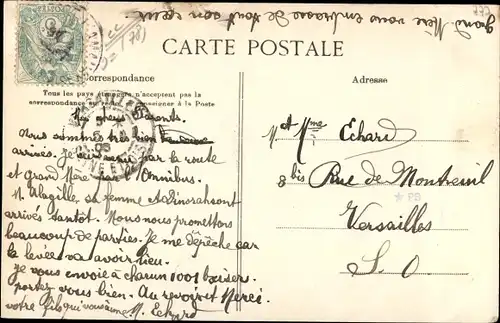 grand Mère vous embrasse de tout son cœur
CARTE POSTALE
Correspondance
Adresse
Tous les pays étrangers n'acceptent pas la
correspondance au recto se renseigner à la Poste
Mes chers Parents.
Nous sommes très bien
arrivés. Je suis venu par la route
et grand Mère par l'Omnibus.
M. sa femme et
arrivés tantôt. Nous nous promettons
beaucoup de parties. Je me dépêche car
la levée va avoir lieu.
Je vous envoie à chacun 1001 baiser
portez vous bien. Au revoir et Merci
votre fils qui vous aime M. Echard
M. et Mme Echard
8 bis Rue de Montreuil
Versailles
S. O